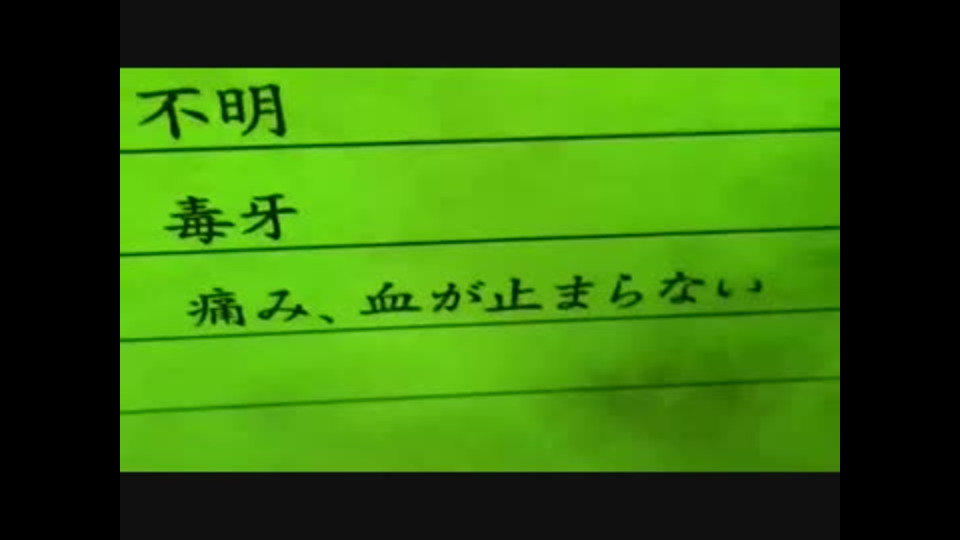 不明
毒牙
痛み、血が止まらない